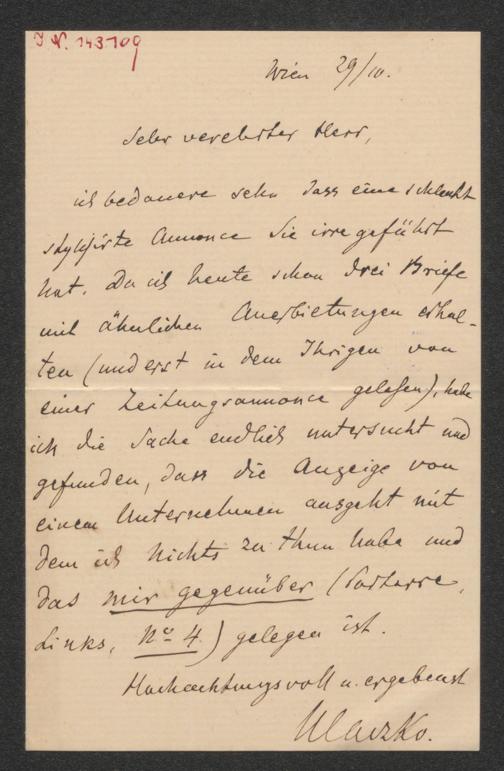 J. N. 143.109
Wien 29/10.
Sehr verehrter Herr,
ich bedauere sehr dass eine schlecht
stylisirte Annonce Sie irregeführt
hat. Da ich heute schon drei Briefe
mit ähnlichen Anerbietungen erhal-
ten (und erst in dem Ihrigen von
einer Zeitungsannonce gelesen), habe
ich die Sache endlich untersucht und
gefunden, dass die Anzeige von
einem Unternehmen ausgeht mit
dem ich Nichts zu thun habe und
das mir gegenüber (Parterre,
Links, No 4.) gelegen ist.
Hochachtungsvoll u. ergebenst
Klaczko.